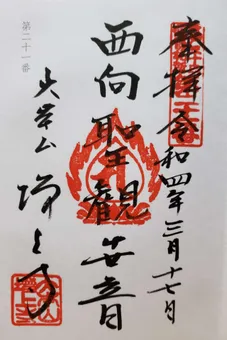 奉拝 令和四年三月十七日
西向聖観世音
第二十一番
三縁山 増上寺